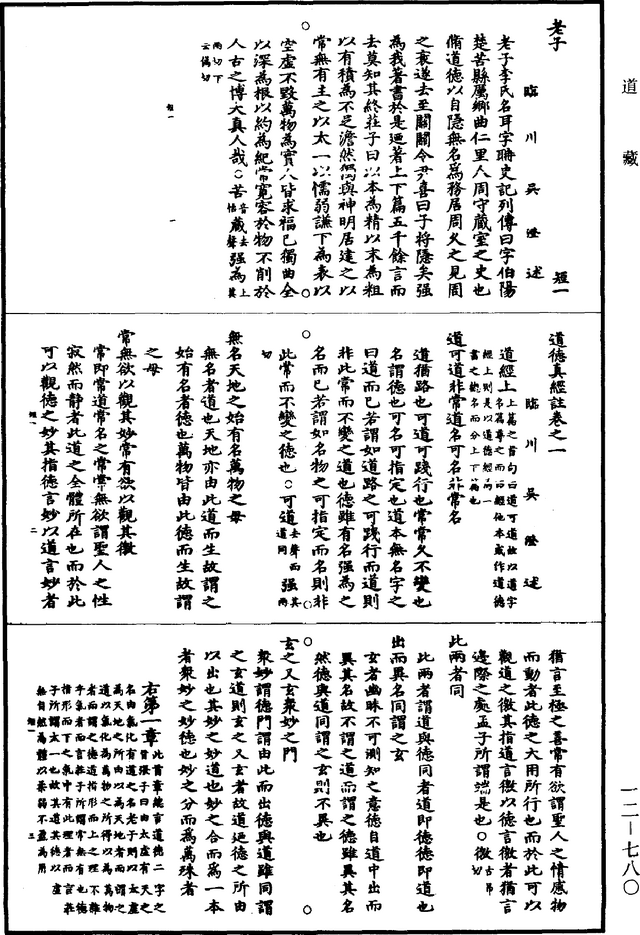 道藏
老子
臨川吳澄述
短一
老子李氏名耳字聃史記列傳曰字伯陽
楚苦縣厲鄉曲仁里人周守藏室之史也
脩道德以自隱無名爲務居周久之見周
之衰遂去至關關令尹喜曰子將隱矣强
為我著書於是迺著上下篇五千餘言而
去莫知其終莊子曰以本為精以末為粗
以有積為不足澹然獨與神明居建之以
常無有主之以太一以懦弱謙下為表以
空虛不毀萬物為實人皆求福已獨曲全
以深為根以約為紀常寬容於物不削於
人古之博大真人哉○苦音怙藏去聲强為上其
兩切下
云偽切
短一
一
道德真經註卷之一
臨川吳澄述
道經上上篇之首句曰道可道故以道字
名篇尊之而曰經他本或作道德
經上則是以道德經為一
書之總名而分上下篇也
道可道非常道名可名非常名
道猶路也可道可踐行也常常久不變也
名謂德也可名可指定也道本無名字之
曰道而已若謂如道路之可踐行而道則
非此常而不變之道也德雖有名强為之
名而已若謂如名物之可指定而名則非
此常而不變之德也○可道去聲而道同强其兩
切
無名天地之始有名萬物之母
無名者道也天地亦由此道而生故謂之
始有名者德也萬物皆由此德而生故謂
之母
常無欲以觀其妙常有欲以觀其徼
常即常道常名之常常無欲謂聖人之性
寂然而靜者此道之全體所在也而於此
可以觀德之妙其指德言妙以道言妙者
短一
二
猶言至極之善常有欲謂聖人之情感物
而動者此德之大用所行也而於此可以
觀道之徼其指道言徼以德言徼者猶言
邊際之處孟子所謂端是也○徼古弔
切
此兩者同
此兩者謂道與德同者道即德德即道也
出而異名同謂之玄
玄者幽昧不可測知之意德自道中出而
異其名故不謂之道而謂之德雖異其名
然德與道同謂之玄則不異也
玄之又玄衆妙之門
衆妙謂德門謂由此而出德與道雖同謂
之玄道則玄之又玄者故道迺德之所由
以出也其妙之妙道也妙之合而為一本
者衆妙之妙德也妙之分而為萬殊者
右第一章此首章總言道德二字之
旨張子曰由太虛有天之
名由氣化有道之名老子則以太虛
為天地之所由以為天地者而謂之
道以氣化為萬物之所得以為萬物
者而謂之德道指形而上之理不雜
乎氣者而言莊子所謂常無有也德
指形而下之氣中有此理者而言莊
子所謂太一也故其道其德以虛
無自然為體以柔弱不盈為用
短一
三
一二—七八〇